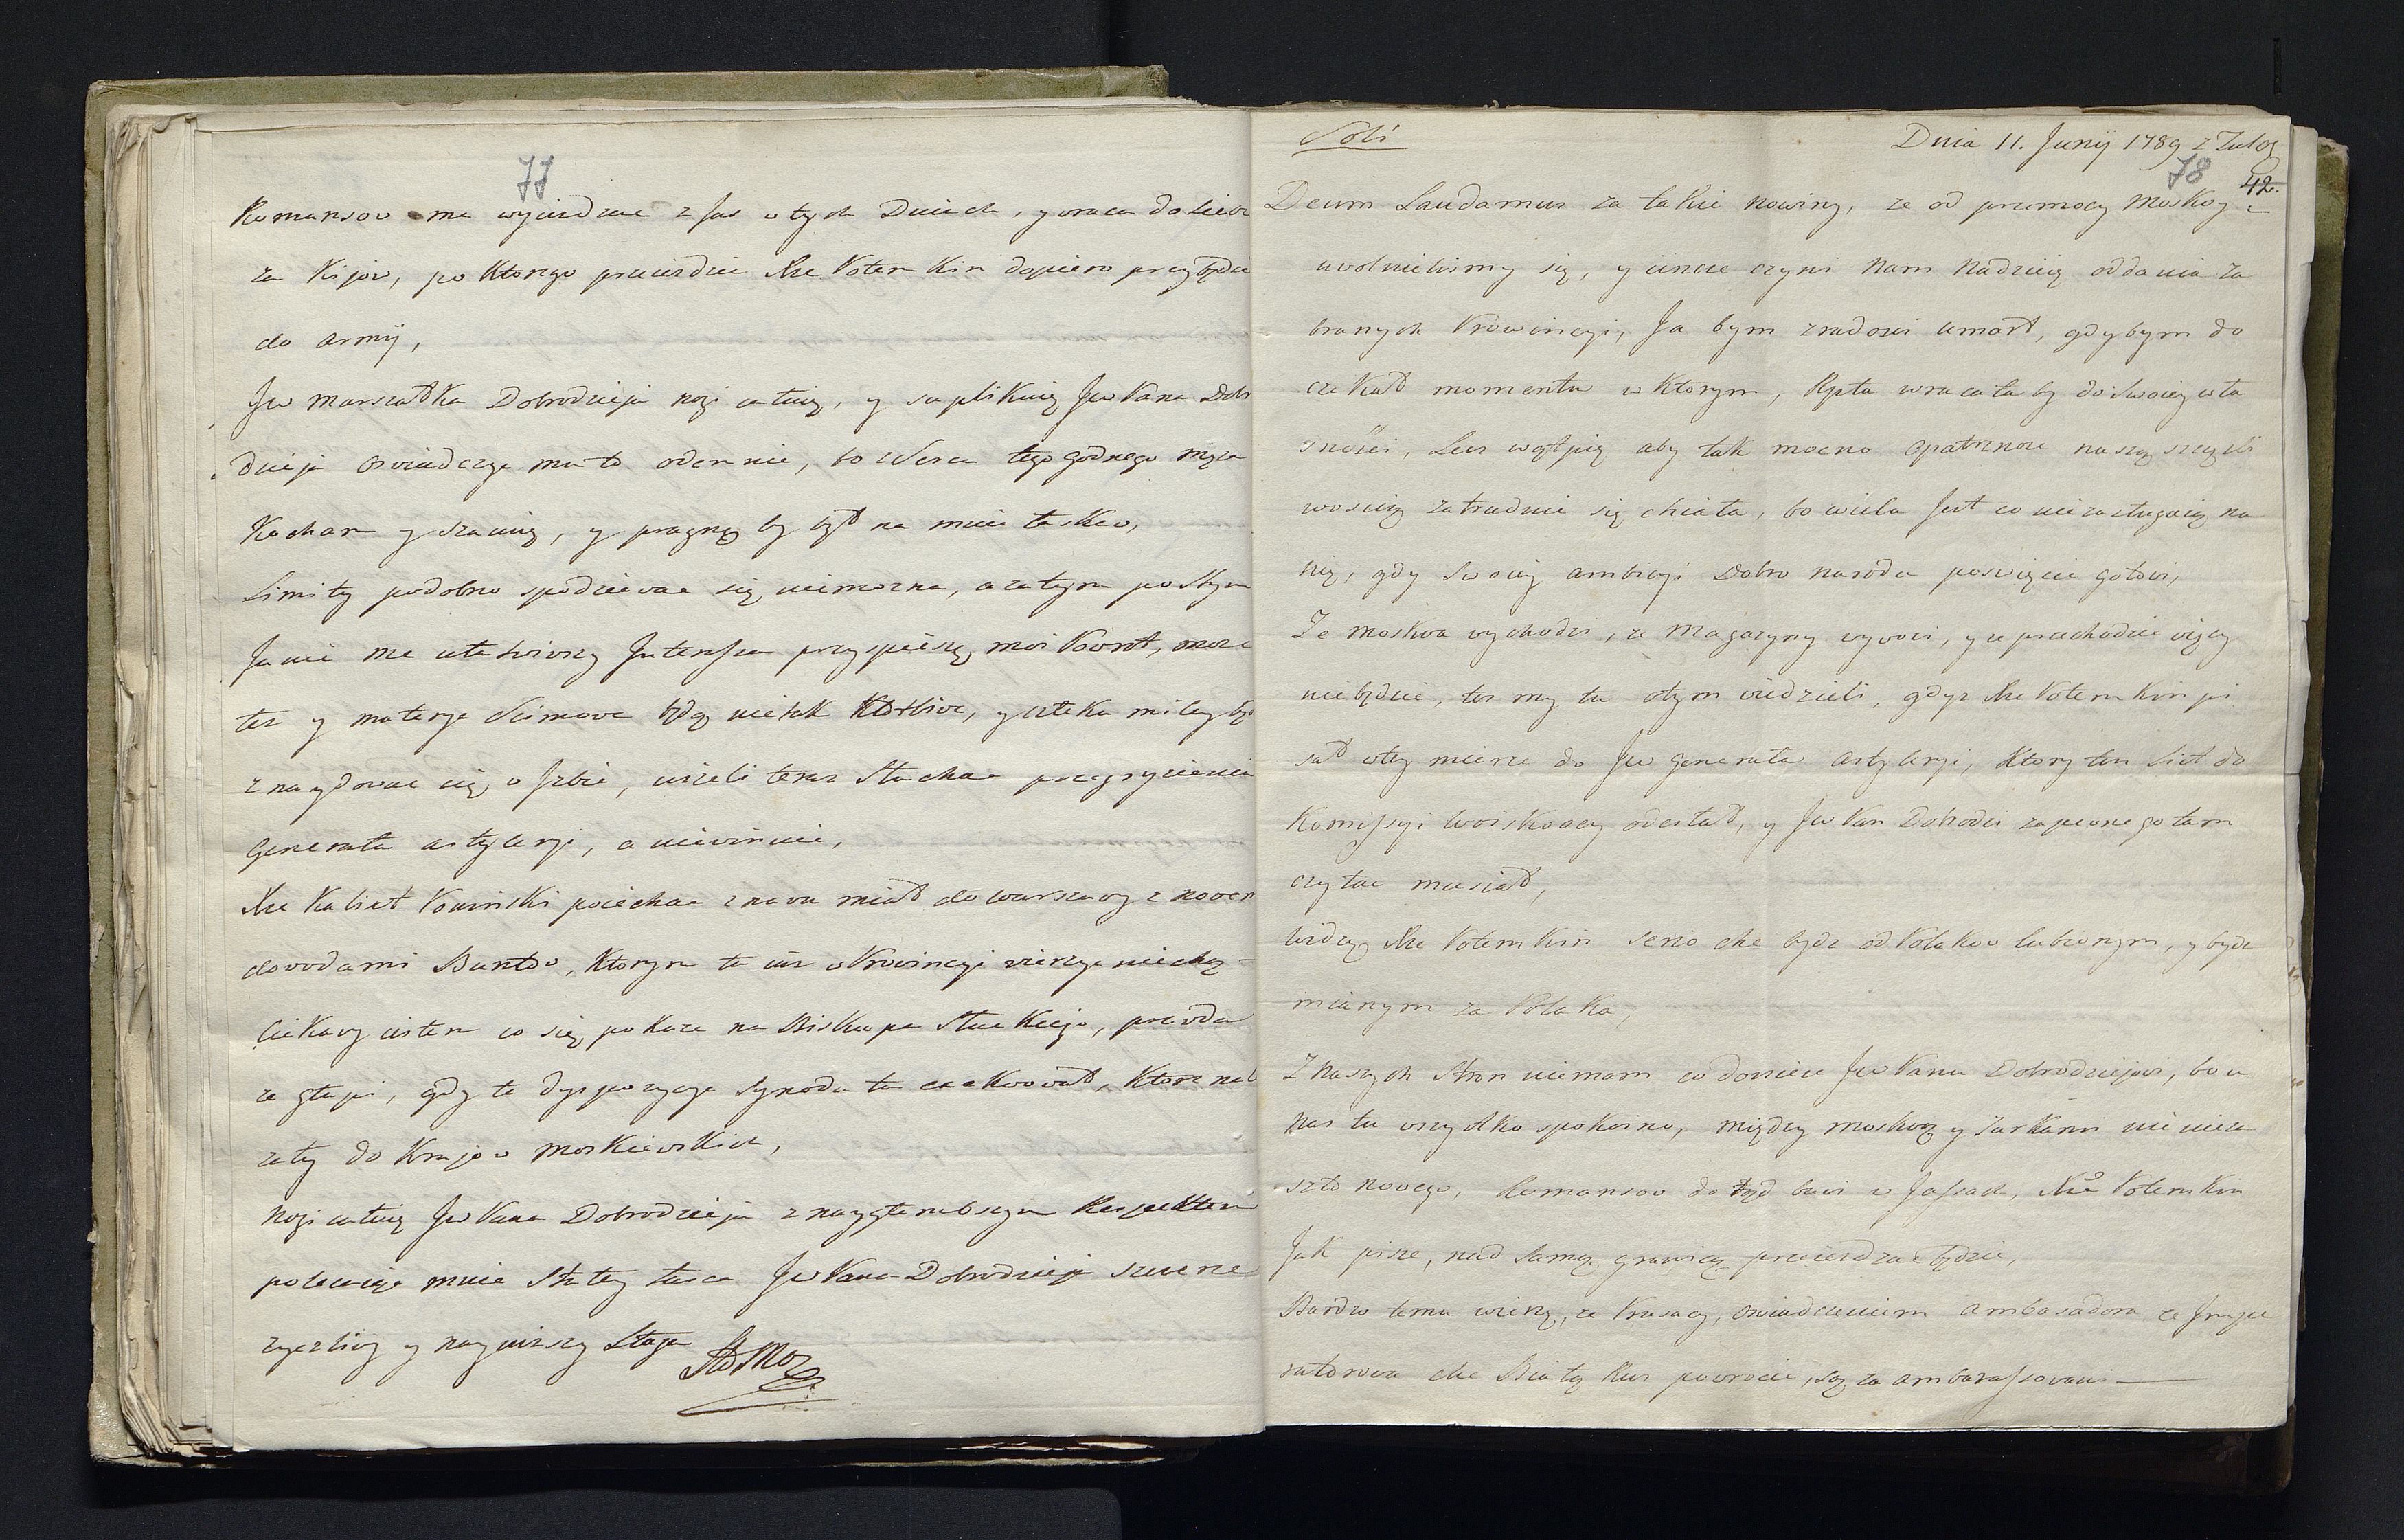 77
Romansow ma wyiezdzac z Jas w tych Dniach, y wraca do siebie
za Kijow, po ktorego przeiezdzie Xze Potemkin dopiero przybędzie
do armij,
Jw Marszałka Dobrodzieja nogi całuię, y suplikuię Jw Pana Dobr
dzieja oswiadczyc mu to odemnie, bo z serca tego godnego męza
Kocham y szanuię, y pragnę by był na mnie łaskaw,
Limity podobno spodziewac się niemozna, a zatym po Stym
Janie me ułatwiwszy Interessa przyspieszę moi Powrot, moze
tez y materye Seimowe będą nie tak Kłotliwe, y człeku miley będ
znaydowac się w Izbie, nizeli teraz słuchac przegryzienia
Generała artyleryi, a niewinnie,
Xze Kalixt Poninski poiechac znowu miał do Warszawy z nowem
dowodami Buntow, ktorym tu iuz w Prowincyi wierzyc niechcą
Ciekawy iestem co się pokaze na Biskupa Słuckiego, prawda
ze głupi, gdy te dyspozycye Synodu tu exekwował, ktore nale
zały do Krajow Moskiewskich,
Nogi całuię Jw Pana Dobrodzieja z naygłembszym Respektem
polecaiąc mnie Stey łasce Jw Pana Dobrodzieja szczerze
zyczliwy y naynizszy Sługa
Soli
Dnia 11. Junij 1789 z Tul
78
42.
Deum Laudamus za takie nowiny, ze od przemocy Moskwy
uwolnielismy się, y ieszcze czyni nam nadzieię oddania za
branych Prowincyi, Ja bym z radosci umarł, gdybym do
czekał momentu w ktorym, Rpta wracała by do swoiey wła
snosci, Lecz wątpię aby tak mocno opatrznosc naszą szczęsli
woscią zatrudnic się chciała, bo wielu Jest co niezasługuią na
nią, gdy swoiey ambicyi Dobro narodu poswięcic gotowi,
Ze Moskwa wychodzi, ze Magazyny wywozi, y ze przechodzic więcy
niebędzie, tos my tu otym wiedzieli, gdyz Xze Potemkin pi
sał wtey mierze do Jw Generała artyleryi, ktory ten List do
Komissyi Woiskowey odesłał, y Jw Pan Dobrodzi zapewne go tam
czytac musiał,
Widzę Xze Potemkin serio chce bydz od Polakow lubionym, y bydz
mianym za Polaka,
Z naszych stron niemam co doniesc Jw Panu Dobrodziejowi, bo u
nas tu wszystko spokoino, między Moskwą y Turkami nic nieza
szło nowego, Romansow do tąd bawi w Jassach, Xże Potemkin
Jak pisze, nad samą granicą przeiezdzac będzie,
Bardzo temu wierzę, ze Prusacy, oswiadczeniem ambasadora ze Impe
ratorowa chce Białą Rus powrocic, są zaambarassowani